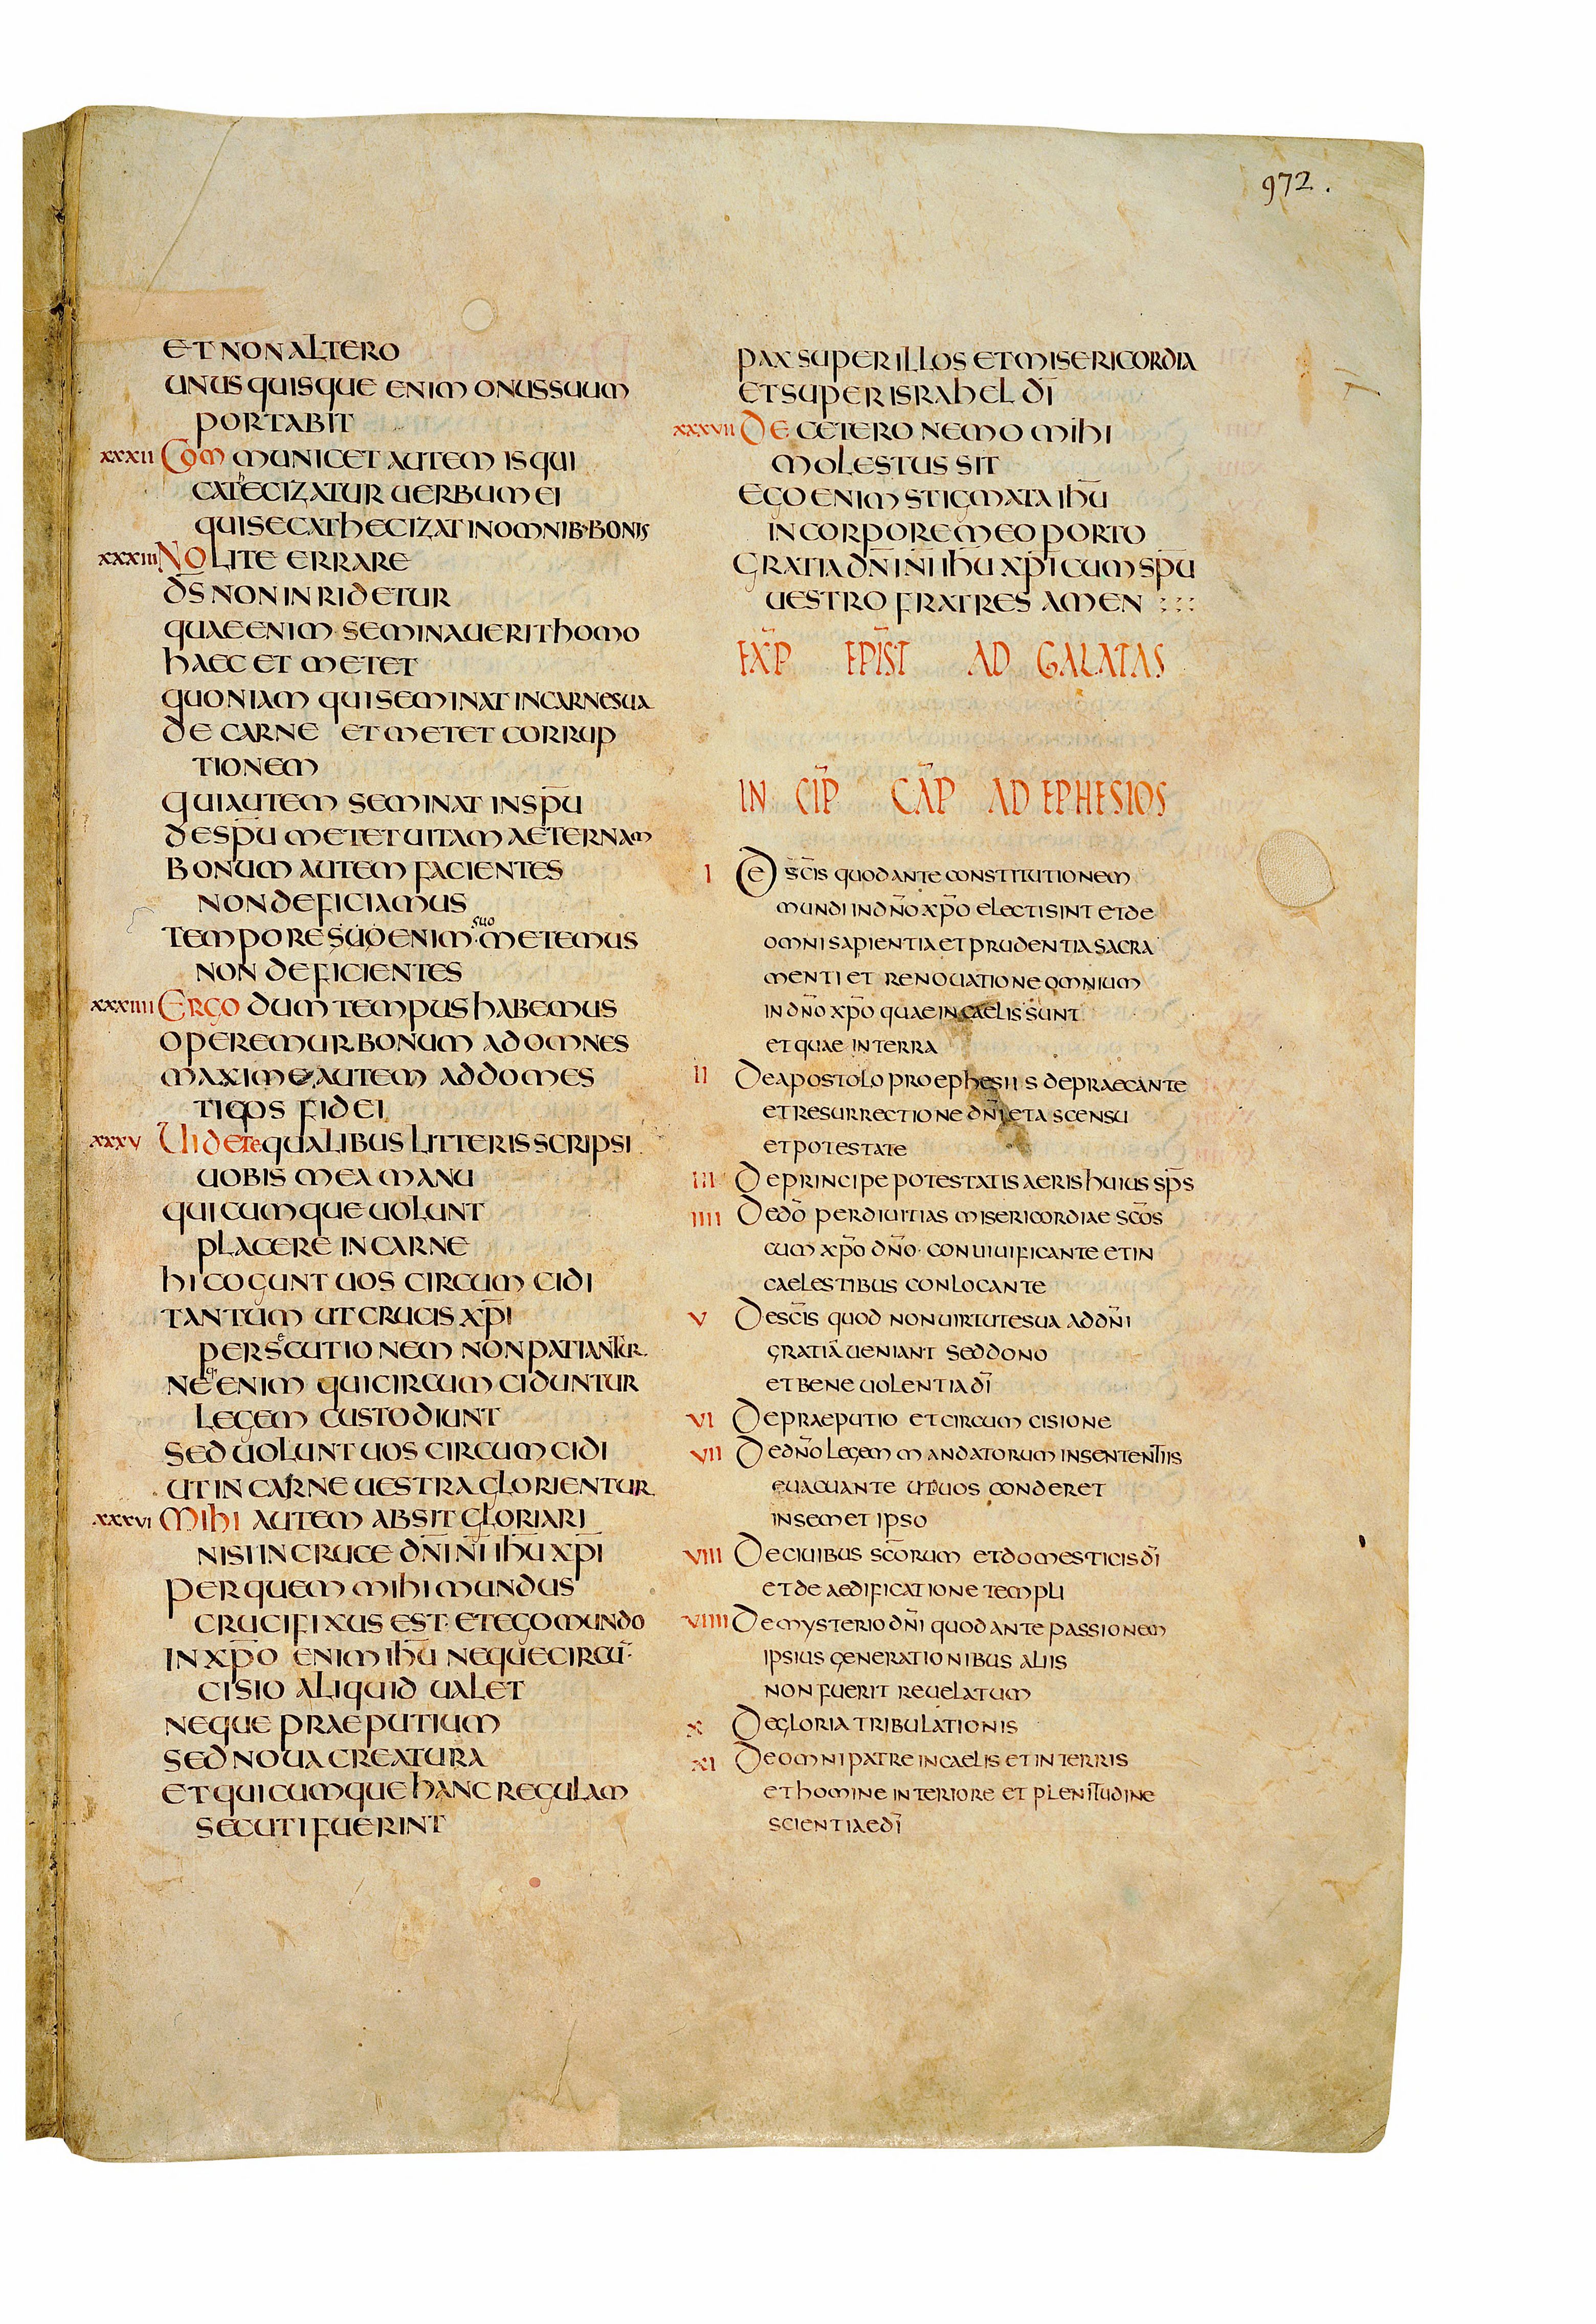 972.
ET NON ALTERO
UNUSQUISQUE ENIM ONUS SUUM
PORTABIT
XXXII COMMUNICET AUTEM IS QUI
CATECIZATUR UERBUM EI
QUI SE CATHECIZAT IN OMNIB· BONIS
XXXIII NOLITE ERRARE
D̄S NON INRIDETUR
QUAE ENIM SEMINAUERIT HOMO
HAEC ET METET
QUONIAM QUI SEMINAT IN CARNE SUA
DE CARNE ET METET CORRUP
TIONEM
QUI AUTEM SEMINAT IN SP̄U
DE SP̄U METET UITAM AETERNAM
BONUM AUTEM FACIENTES
NON DEFICIAMUS
TEMPORE SUO ENIM suo METEMUS
NON DEFICIENTES
XXXIIII ERGO DUM TEMPUS HABEMUS
OPEREMUR BONUM AD OMNES
MAXIME AUTEM AD DOMES
TICOS FIDEI
XXXV UIDETE QUALIBUS LITTERIS SCRIPSI
UOBIS MEA MANU
QUICUMQUE UOLUNT
PLACERE IN CARNE
HI COGUNT UOS CIRCUMCIDI
TANTUM UT CRUCIS XP̄I
PERSECUTIONEM NON PATIANTUR
NEQ· ENIM QUI CIRCUMCIDUNTUR
LEGEM CUSTODIUNT
SED UOLUNT UOS CIRCUMCIDI
UT IN CARNE UESTRA GLORIENTUR
XXXVI MIHI AUTEM ABSIT GLORIARI
NISI IN CRUCE DN̄I N̄I IH̄U XP̄I
PER QUEM MIHI MUNDUS
CRUCIFIXUS EST· ET EGO MUNDO
IN XP̄O ENIM IH̄U NEQUE CIRCŪ·
CISIO ALIQUID UALET
NEQUE PRAEPUTIUM
SED NOUA CREATURA
ET QUICUMQUE HANC REGULAM
SECUTI FUERINT
PAX SUPER ILLOS ET MISERICORDIA
ET SUPER ISRAHEL D̄I
XXXVII DE CETERO NEMO MIHI
MOLESTUS SIT
EGO ENIM STIGMATA IH̄U
IN CORPORE MEO PORTO
GRATIA DN̄I N̄I IH̄U XP̄I CUM SP̄U
UESTRO FRATRES AMEN :::
EXP̄ EPIST̄ AD GALATAS
INCIP̄ CAP̄ AD EPHESIOS
I DE SC̄IS QUOD ANTE CONSTITUTIONEM
MUNDI IN DN̄O XP̄O ELECTI SINT ET DE
OMNI SAPIENTIA ET PRUDENTIA SACRA
MENTI ET RENOUATIONE OMNIUM
IN DN̄O XP̄O QUAE IN CAELIS SUNT
ET QUAE IN TERRA
II DE APOSTOLO PRO EPHESIIS DEPRAECANTE
ET RESURRECTIONE DN̄I ET ASCENSU
ET POTESTATE
III DE PRINCIPE POTESTATIS AERIS HUIUS SP̄S
IIII DE D̄O PER DIUITIAS MISERICORDIAE SC̄OS
CUM XP̄O DN̄O· CONUIUIFICANTE ET IN
CAELESTIBUS CONLOCANTE
V DE SC̄IS QUOD NON UIRTUTE SUA AD DN̄I
GRATIĀ UENIANT SED DONO
ET BENEUOLENTIA D̄I
VI DE PRAEPUTIO ET CIRCUMCISIONE
VII DE DN̄O LEGEM MANDATORUM IN SENTENTIIS
EUACUANTE UT DUOS CONDERET
IN SEMET IPSO
VIII DE CIUIBUS SC̄ORUM ET DOMESTICIS D̄I
ET DE AEDIFICATIONE TEMPLI
VIIII DE MYSTERIO DN̄I QUOD ANTE PASSIONEM
IPSIUS GENERATIONIBUS ALIIS
NON FUERIT REUELATUM
X DE GLORIA TRIBULATIONIS
XI DE OMNI PATRE IN CAELIS ET IN TERRIS
ET HOMINE INTERIORE ET PLENITUDINE
SCIENTIAE D̄I